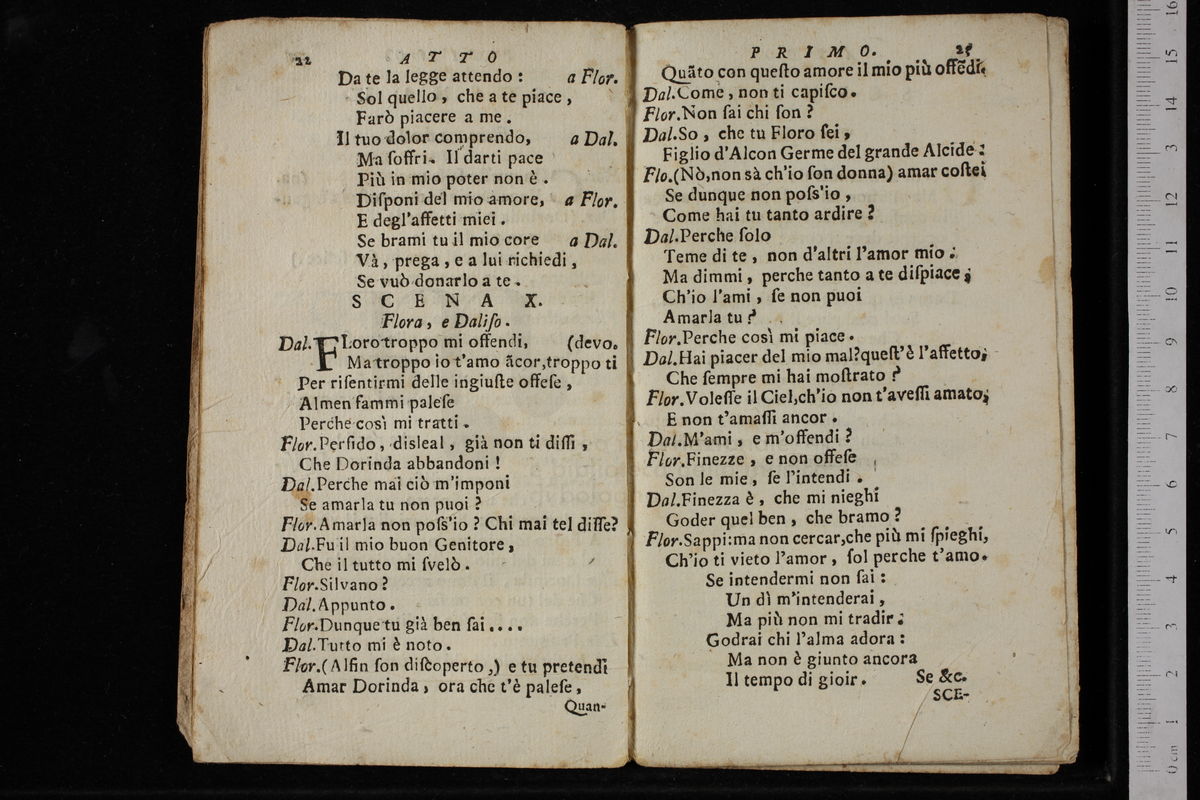 22 ATTO
Da te la legge attendo : a Flor.
Sol quello , che a te piace ,
Farò piacere a me .
Il tuo dolor comprendo, a Dal.
Ma ſoffri. Il darti pace
Più in mio poter non è .
Diſponi del mio amore, a Flor.
E degl'affetti miei .
Se brami tu il mio core a Dal.
Và , prega , e a lui richiedi ,
Se vuò donarlo a te .
SCENA X.
Flora, e Daliſo.
Dal. FLoro troppo mi offendi, (devo.
Ma troppo io t'amo ãcor,troppo ti
Per riſentirmi delle ingiuſte offeſe ,
Almen fammi paleſe
Perche così mi tratti .
Flor.Perfido , disleal , già non ti diſſi ,
Che Dorinda abbandoni !
Dal.Perche mai ciò m'imponi
Se amarla tu non puoi ?
Flor.Amarla non poſs'io ? Chi mai tel diſſe?
Dal.Fu il mio buon Genitore ,
Che il tutto mi ſvelò .
Flor.Silvano ?
Dal.Appunto .
Flor.Dunque tu già ben ſai . . . .
Dal.Tutto mi è noto .
Flor.(Alfin ſon diſcoperto ,) e tu pretendi
Amar Dorinda , ora che t'è paleſe ,
Quan-
PRIMO. 25
Quãto con queſto amore il mio più offẽdi.
Dal.Come , non ti capiſco .
Flor.Non ſai chi ſon ?
Dal.So , che tu Floro ſei ,
Figlio d'Alcon Germe del grande Alcide :
Flo.(Nò,non sà ch'io ſon donna) amar coſtei
Se dunque non poſs'io ,
Come hai tu tanto ardire ?
Dal.Perche ſolo
Teme di te , non d'altri l'amor mio :
Ma dimmi , perche tanto a te diſpiace ;
Ch'io l'ami , ſe non puoi
Amarla tu ?
Flor.Perche così mi piace .
Dal.Hai piacer del mio mal?queſt'è l'affetto;
Che ſempre mi hai moſtrato ?
Flor.Voleſſe il Ciel,ch'io non t'aveſſi amato;
E non t'amaſſi ancor .
Dal.M'ami , e m'offendi ?
Flor.Finezze , e non offeſe
Son le mie , ſe l'intendi .
Dal.Finezza è , che mi nieghi
Goder quel ben , che bramo ?
Flor.Sappi:ma non cercar,che più mi ſpieghi,
Ch'io ti vieto l'amor , ſol perche t'amo .
Se intendermi non ſai :
Un dì m'intenderai ,
Ma più non mi tradir :
Godrai chi l'alma adora :
Ma non è giunto ancora
Il tempo di gioir . Se &c.
SCE-
0 cm 1 2 3 4 5 6 7 8 9 10 11 12 3 14 15 16